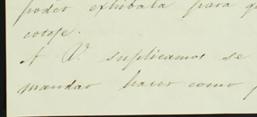 poder exhibala para q
coteje.
A V. suplicamos se
mandar hacer como p